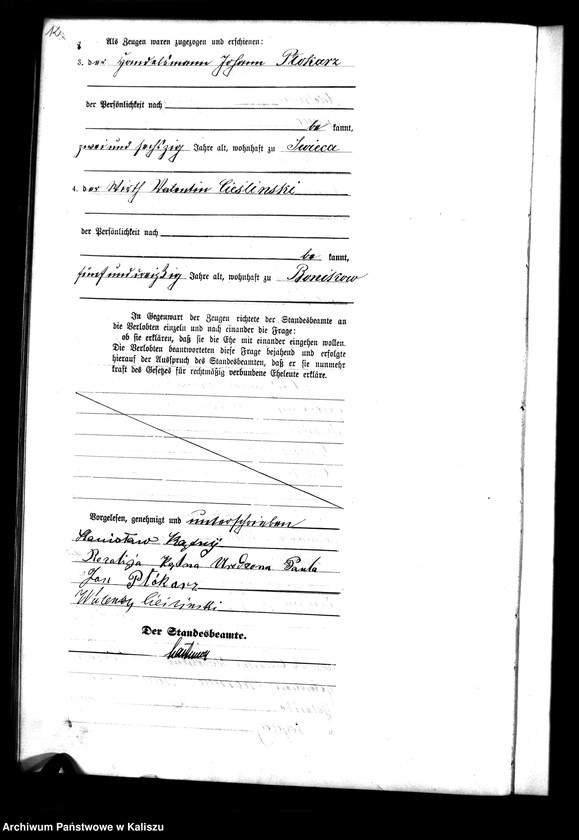 12.
Als Zeugen waren zugezogen und erschienen:
3. der Handelsmann Johann Płokarz
der Persönlichkeit nach
be kannt,
zwei und sechszig Jahre alt, wohnhaft zu Iwieca
4. der Wirth Valentin Cieślinski
der Persönlichkeit nach
be kannt,
fünf und dreißig Jahre alt, wohnhaft zu Bonikow
In Gegenwart der Zeugen richtete der Standesbeamte an
die Verlobten einzeln und nach einander die Frage:
ob sie erklären, daß sie die Ehe mit einander eingehen wollen.
Die Verlobten beantworteten diese Frage bejahend und erfolgte
hierauf der Ausspruch des Standesbeamten, daß er sie nunmehr
kraft des Gesetzes für rechtmäßig verbundene Eheleute erkläre.
Vorgelesen, genehmigt und unterschrieben
Stanisław
Rozalija Urodzona
Jan Płókarz
Walenty Cieślinski
Der Standesbeamte.
Archiwum Państwowe w Kaliszu